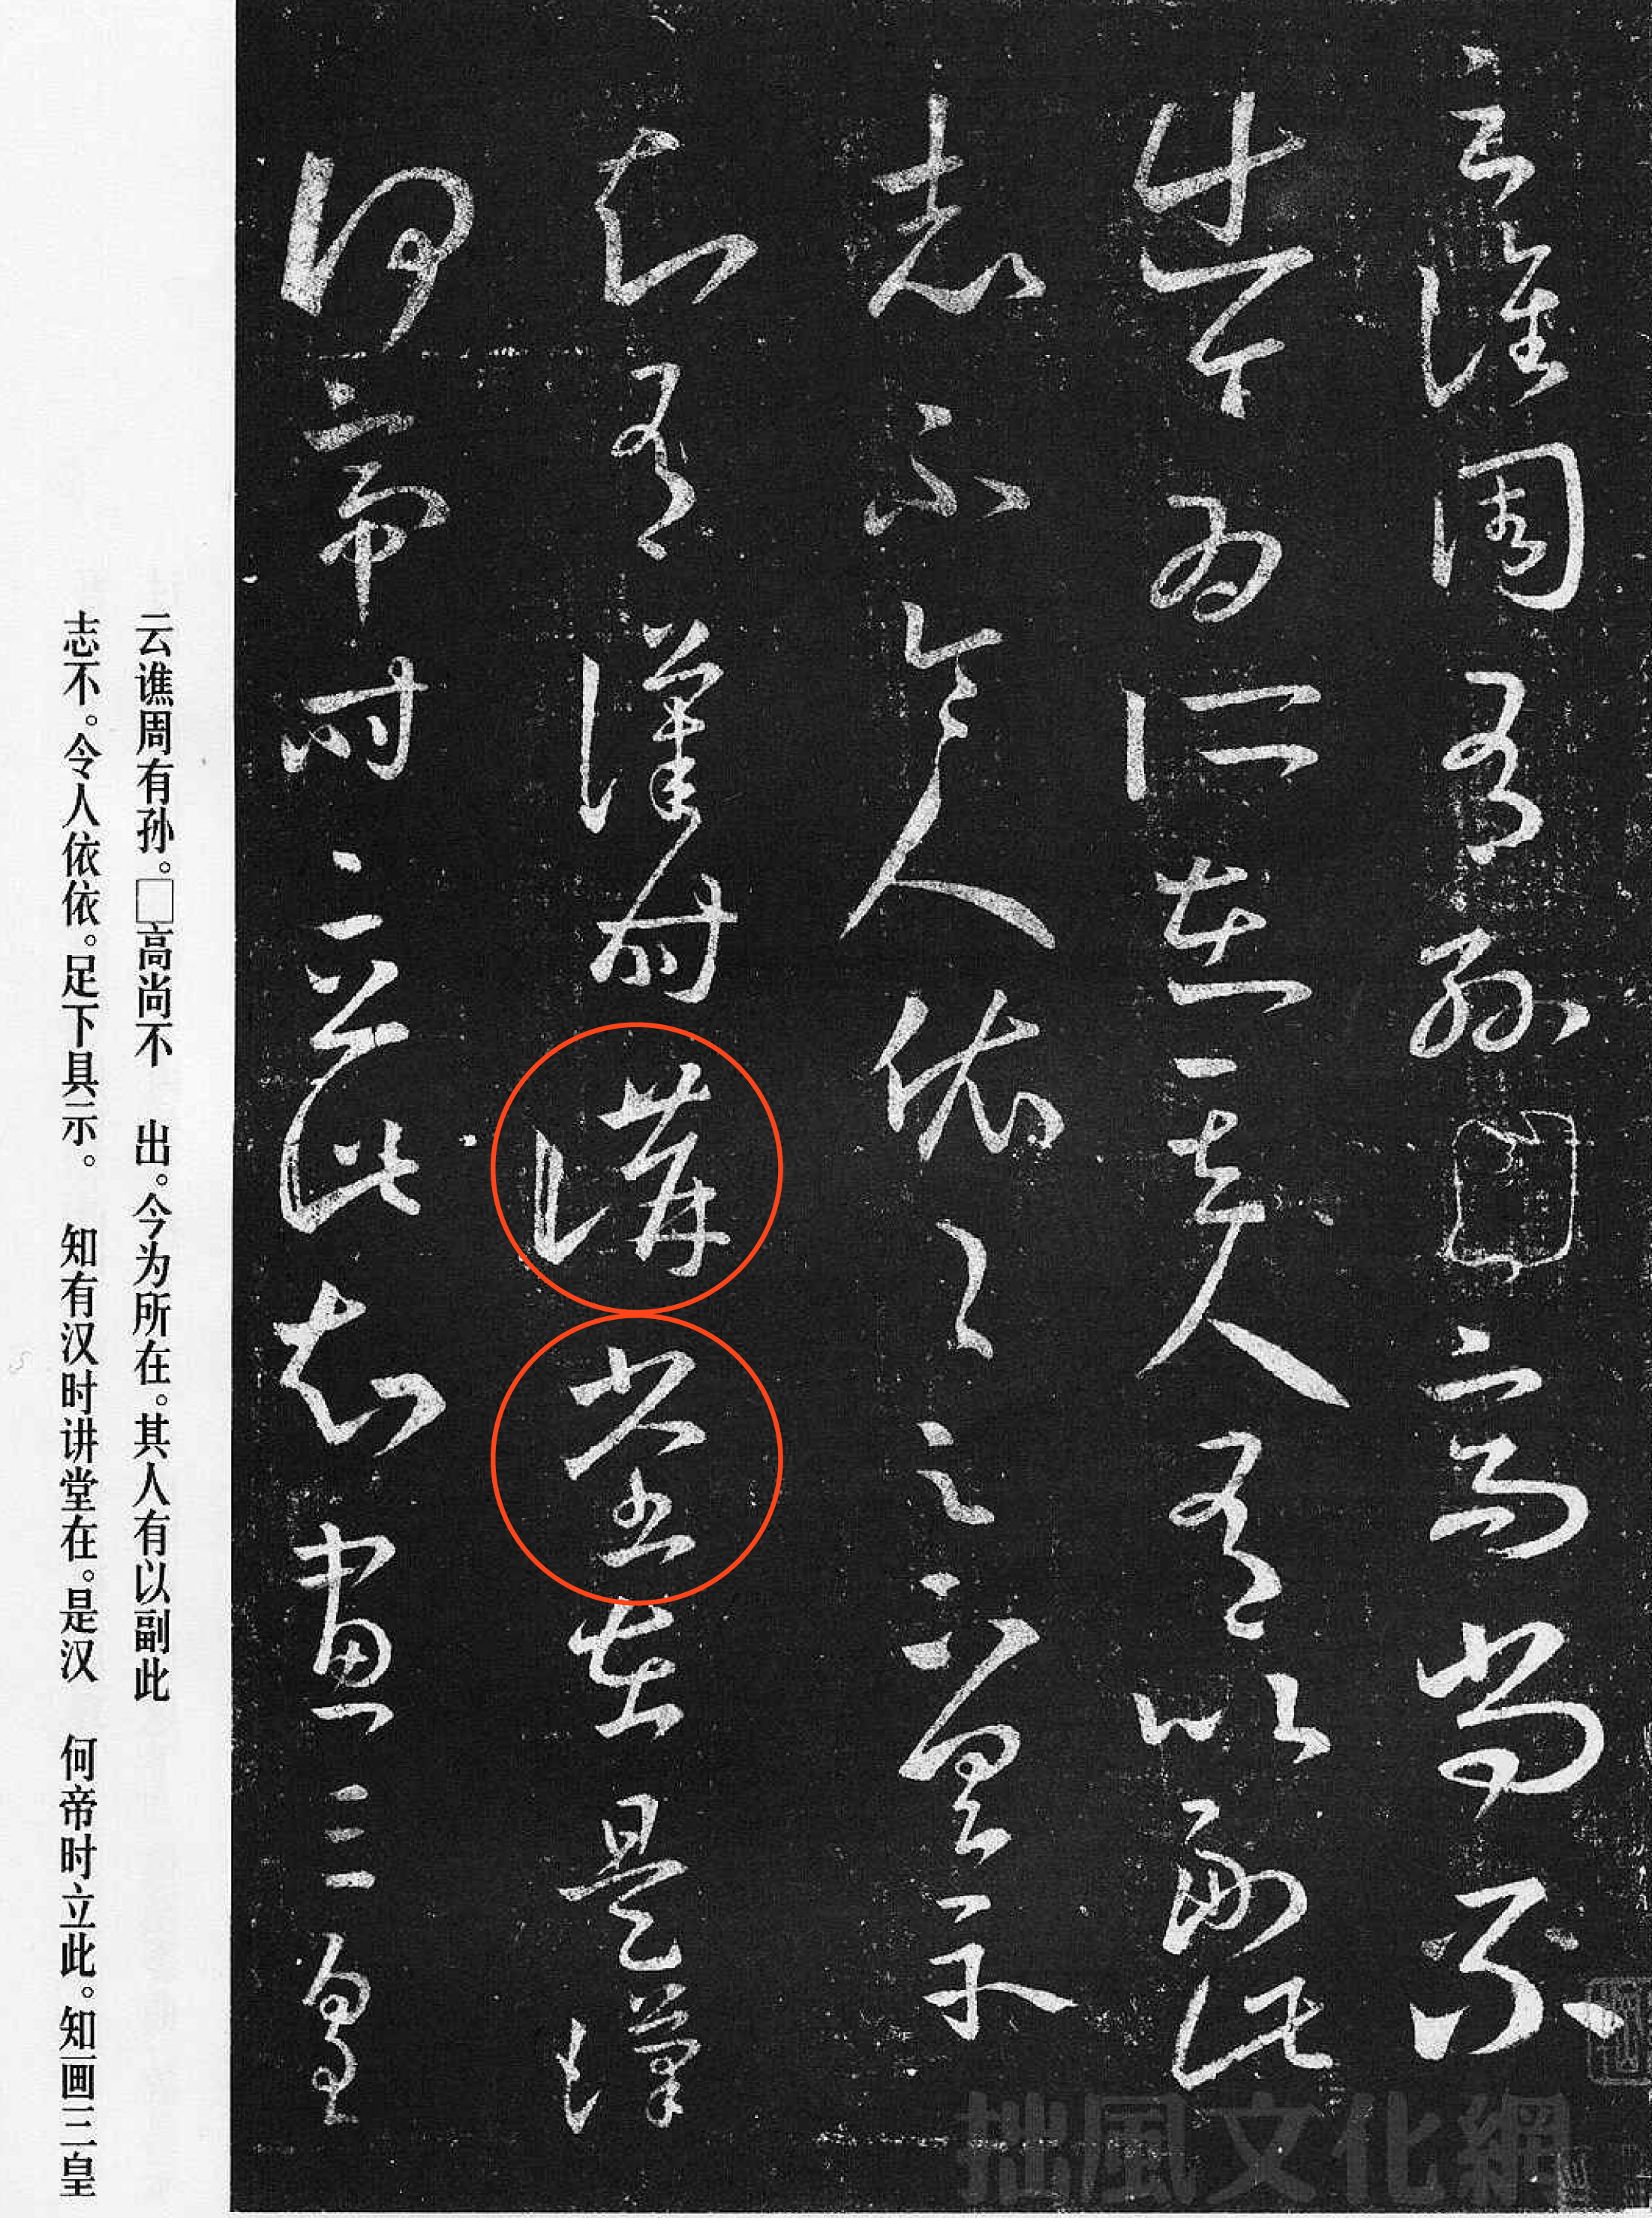 云譙周有孫□高尚不
出今為所在其人有以副此
志不令人依々足下具示
知有漢時講堂在是漢
何帝時立此知畫三皇
云谯周有孙。□高尚不 出。今为所在。其人有以副此
志不。令人依依。足下具示。 知有汉时讲堂在。是汉 何帝时立此。知画三皇
拙風文化網